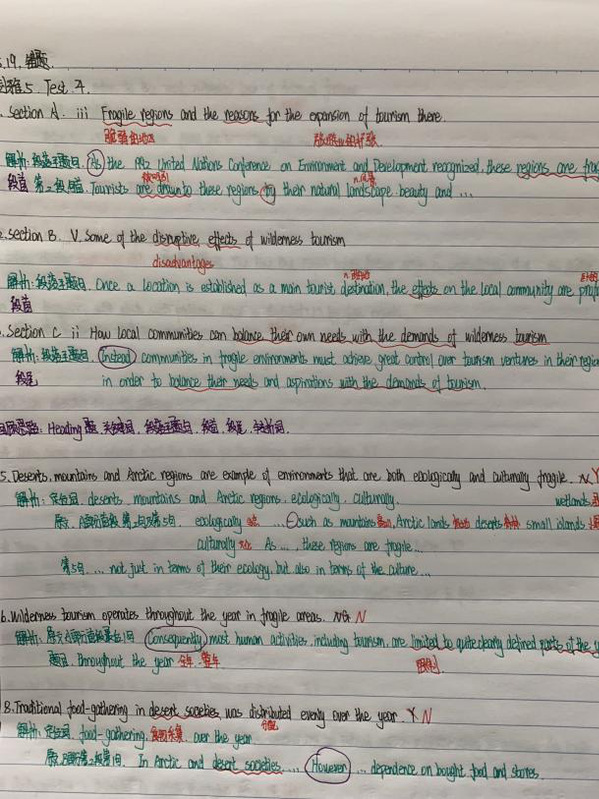 5.19.错题
剑雅5. Test 4.
Section A. iii Fragile regions and the reasons for the expansion of tourism there.
脆弱的地区
解析:段落主题句. As the 1992 United Nations Conference on Environment and Development recognized, these regions are frag
段首 第二段段首. Tourists are drawn to these regions by their natural landscape beauty and ...
被吸引 n.风景
Section B. V. Some of the disruptive effects of wilderness tourism
disadvantages
解析:段落主题句. Once a location is established as a main tourist destination, the effects on the local community are prof
段首
Section C ii How local communities can balance their own needs with the demands of wilderness tourism
解析:段落主题句. Instead communities in fragile environments must achieve great control over tourism ventures in their region
段尾 in order to balance their needs and aspirations with the demands of tourism.
Heading题, 关键词, 段落主题句, 段首, 段尾, 转折词.
5. Deserts, mountains and Arctic regions are example of environments that are both ecologically and culturally fragile. N Y
解析:定位词 deserts, mountains and Arctic regions, ecologically, culturally. wetlands
原文 ecologically ... such as mountains Arctic lands deserts small islands
culturally As ... , these regions are fragile ...
第5句 ... not just in terms of their ecology, but also in terms of the culture ...
6. Wilderness tourism operates throughout the year in fragile areas. NG N
解析: Consequently most human activities, including tourism, are limited to quite clearly defined parts of the y
题目. throughout the year 全年. 整年 限制
8. Traditional food-gathering in desert societies was distributed evenly over the year. Y N
分配
解析:定位词 food-gathering, over the year
In Arctic and desert societies ... However ... dependence on bought food and stores.